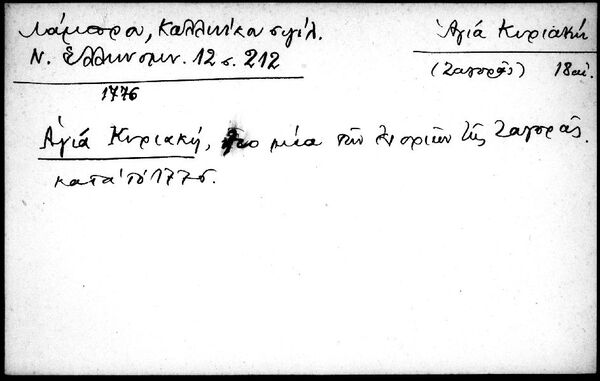 Λάμπρου, Καλλινίκου σιγίλ.
Ν. Ἑλληνομν. 12 σ. 212
1776
Ἁγιά Κυριακή
(Ζαγορᾶς) 18 αἰ.
Ἁγιά Κυριακή, μία τῶν ἐνοριῶν τῆς Ζαγορᾶς.
κατά τό 1776.